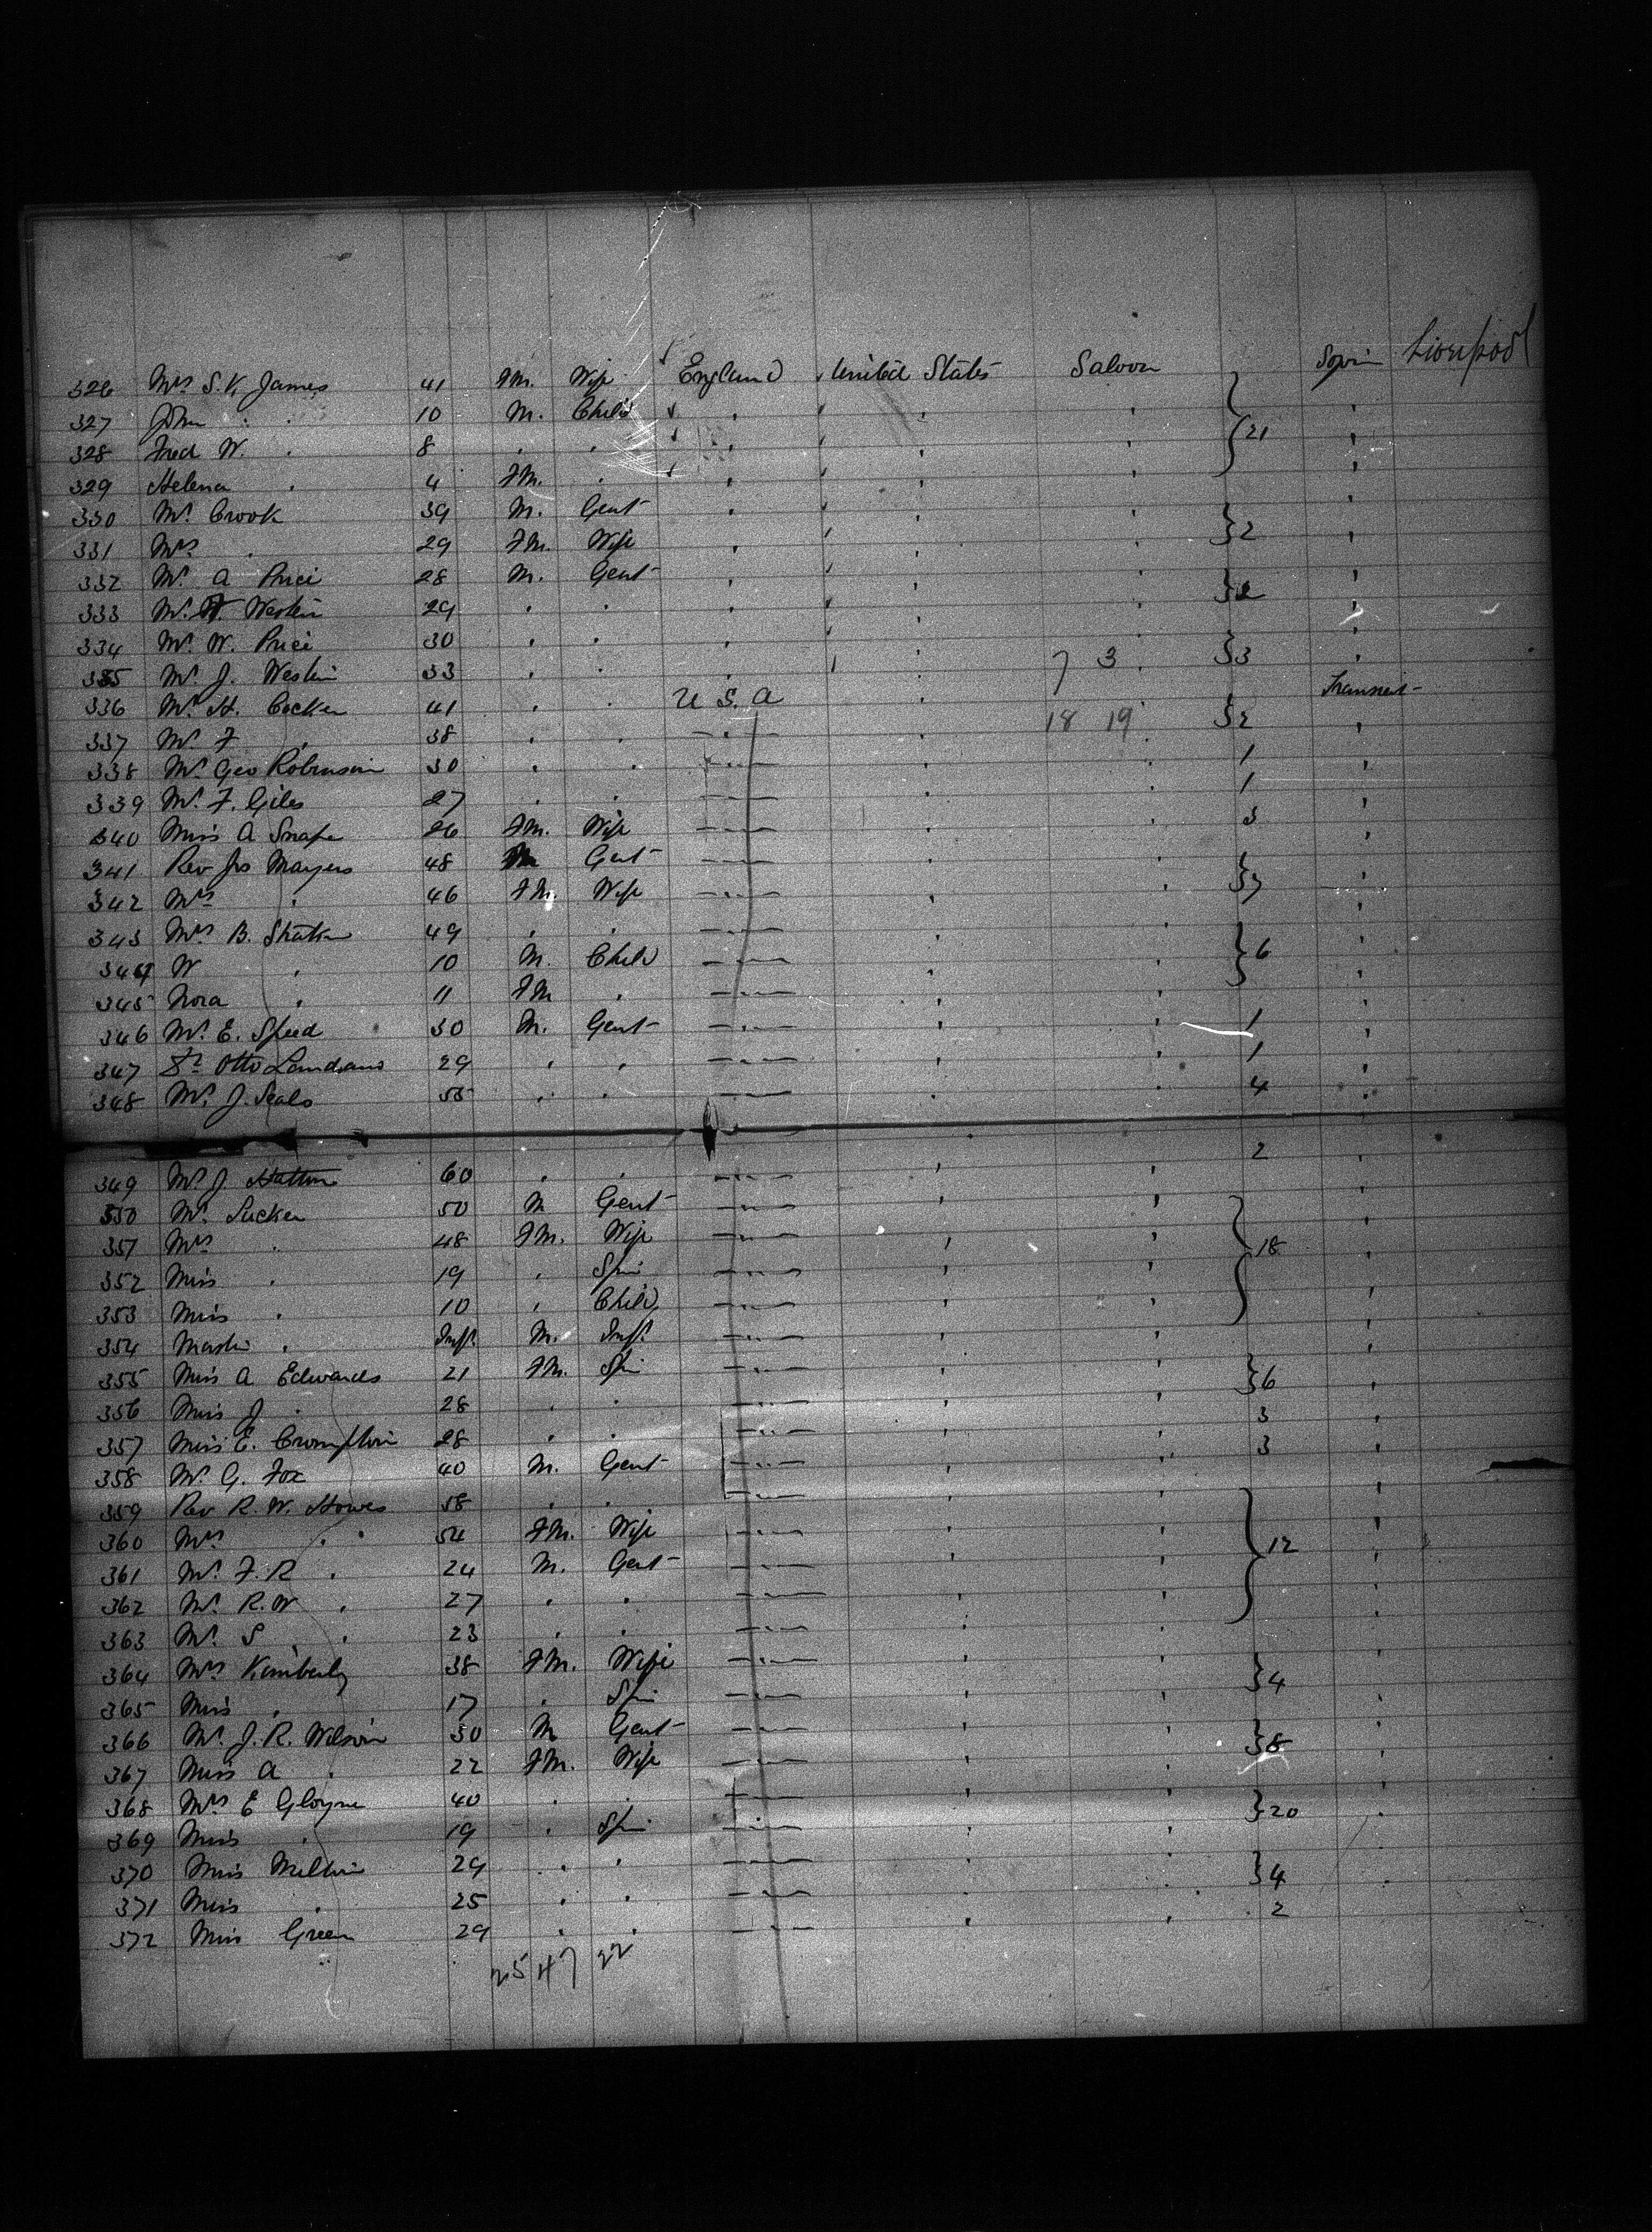 326 Mrs S. V. James 41 FM. Wife England United States Saloon Sojrn Liverpool
327 John " 10 M. Child " " " "
328 Fred W. " 8 " " " " " } 21 "
329 Helena " 4 FM. " " " " "
330 Mr. Crook 39 M. Gent " " " "
331 Mrs " 29 FM. Wife " " " } 2 "
332 Mr. A Price 28 M. Gent " " " "
333 Mr. Westein 29 " " " " " } "
334 Mr. W. Price 30 " " " " "
335 Mr. J. Westein 33 " " " " 7 3 " } 3 "
336 Mr. H. Cocker 41 " " U S. A " Transit
337 Mr. F " 38 " " — " — " 18 19 " } 2 "
338 Mr. Geo Robinson 30 " " — " — " " 1 "
339 Mr. F. Giles 27 " " — " — " " 1 "
340 Miss A Snape 26 FM. Wife — " — " " 3 "
341 Rev Jos Mayers 48 M Gent — " — " " "
342 Mrs " 46 FM. Wife — " — " " } 7 "
343 Mrs B. 49 " " — " — " " "
344 W " 10 M. Child — " — " " } 6 "
345 Nora " 11 FM " — " — " " "
346 Mr. E. Speed 30 M. Gent — " — " " 1 "
347 Otto 29 " " — " — " " 1 "
348 Mr. J. Seals 55 " " — " — " " 4 "
349 Mr. J. Hatton 60 " " — " — " " 2 "
350 Mr. 50 M Gent — " — " " "
351 Mrs " 48 FM. Wife — " — " " "
352 Miss " 19 " Spin — " — " " } 18 "
353 Miss " 10 " Child — " — " " "
354 Master " Inft. M. Inft. — " — " " "
355 Miss A Edwards 21 FM. Spin — " — " " "
356 Miss J " 28 " " — " — " " } 6 "
357 Miss E. Crompton 28 " " — " — " " 3 "
358 Mr. G. Fox 40 M. Gent — " — " " 3 "
359 Rev R. W. Howes 58 " " — " — " " "
360 Mrs " 54 FM. Wife — " — " " "
361 Mr. F. R " 24 M. Gent — " — " " } 12 "
362 Mr. R. W " 27 " " — " — " " "
363 Mr. S " 23 " " — " — " " "
364 Mrs Kimberly 38 FM. Wife — " — " " "
365 Miss " 17 " Spin — " — " " } 4 "
366 Mr. J. R. Wilson 30 M Gent — " — " " "
367 Miss A " 22 FM. Wife — " — " " } "
368 Mrs E Gloyne 40 " " — " — " " "
369 Miss " 19 " Spin — " — " " } 20 "
370 Miss 29 " " — " — " " "
371 Miss " 25 " " — " — " " } 4
372 Miss Green 29 " " — " — " " 2
25 47 22